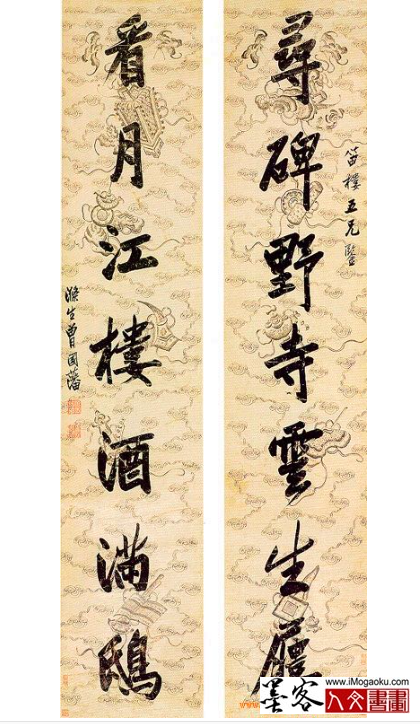 尋碑野寺雲生屨
笛樓五兄鑒
看月江樓酒滿鴟
滌生曾國藩
墨客
www.iMogaoku.com
人文書畫